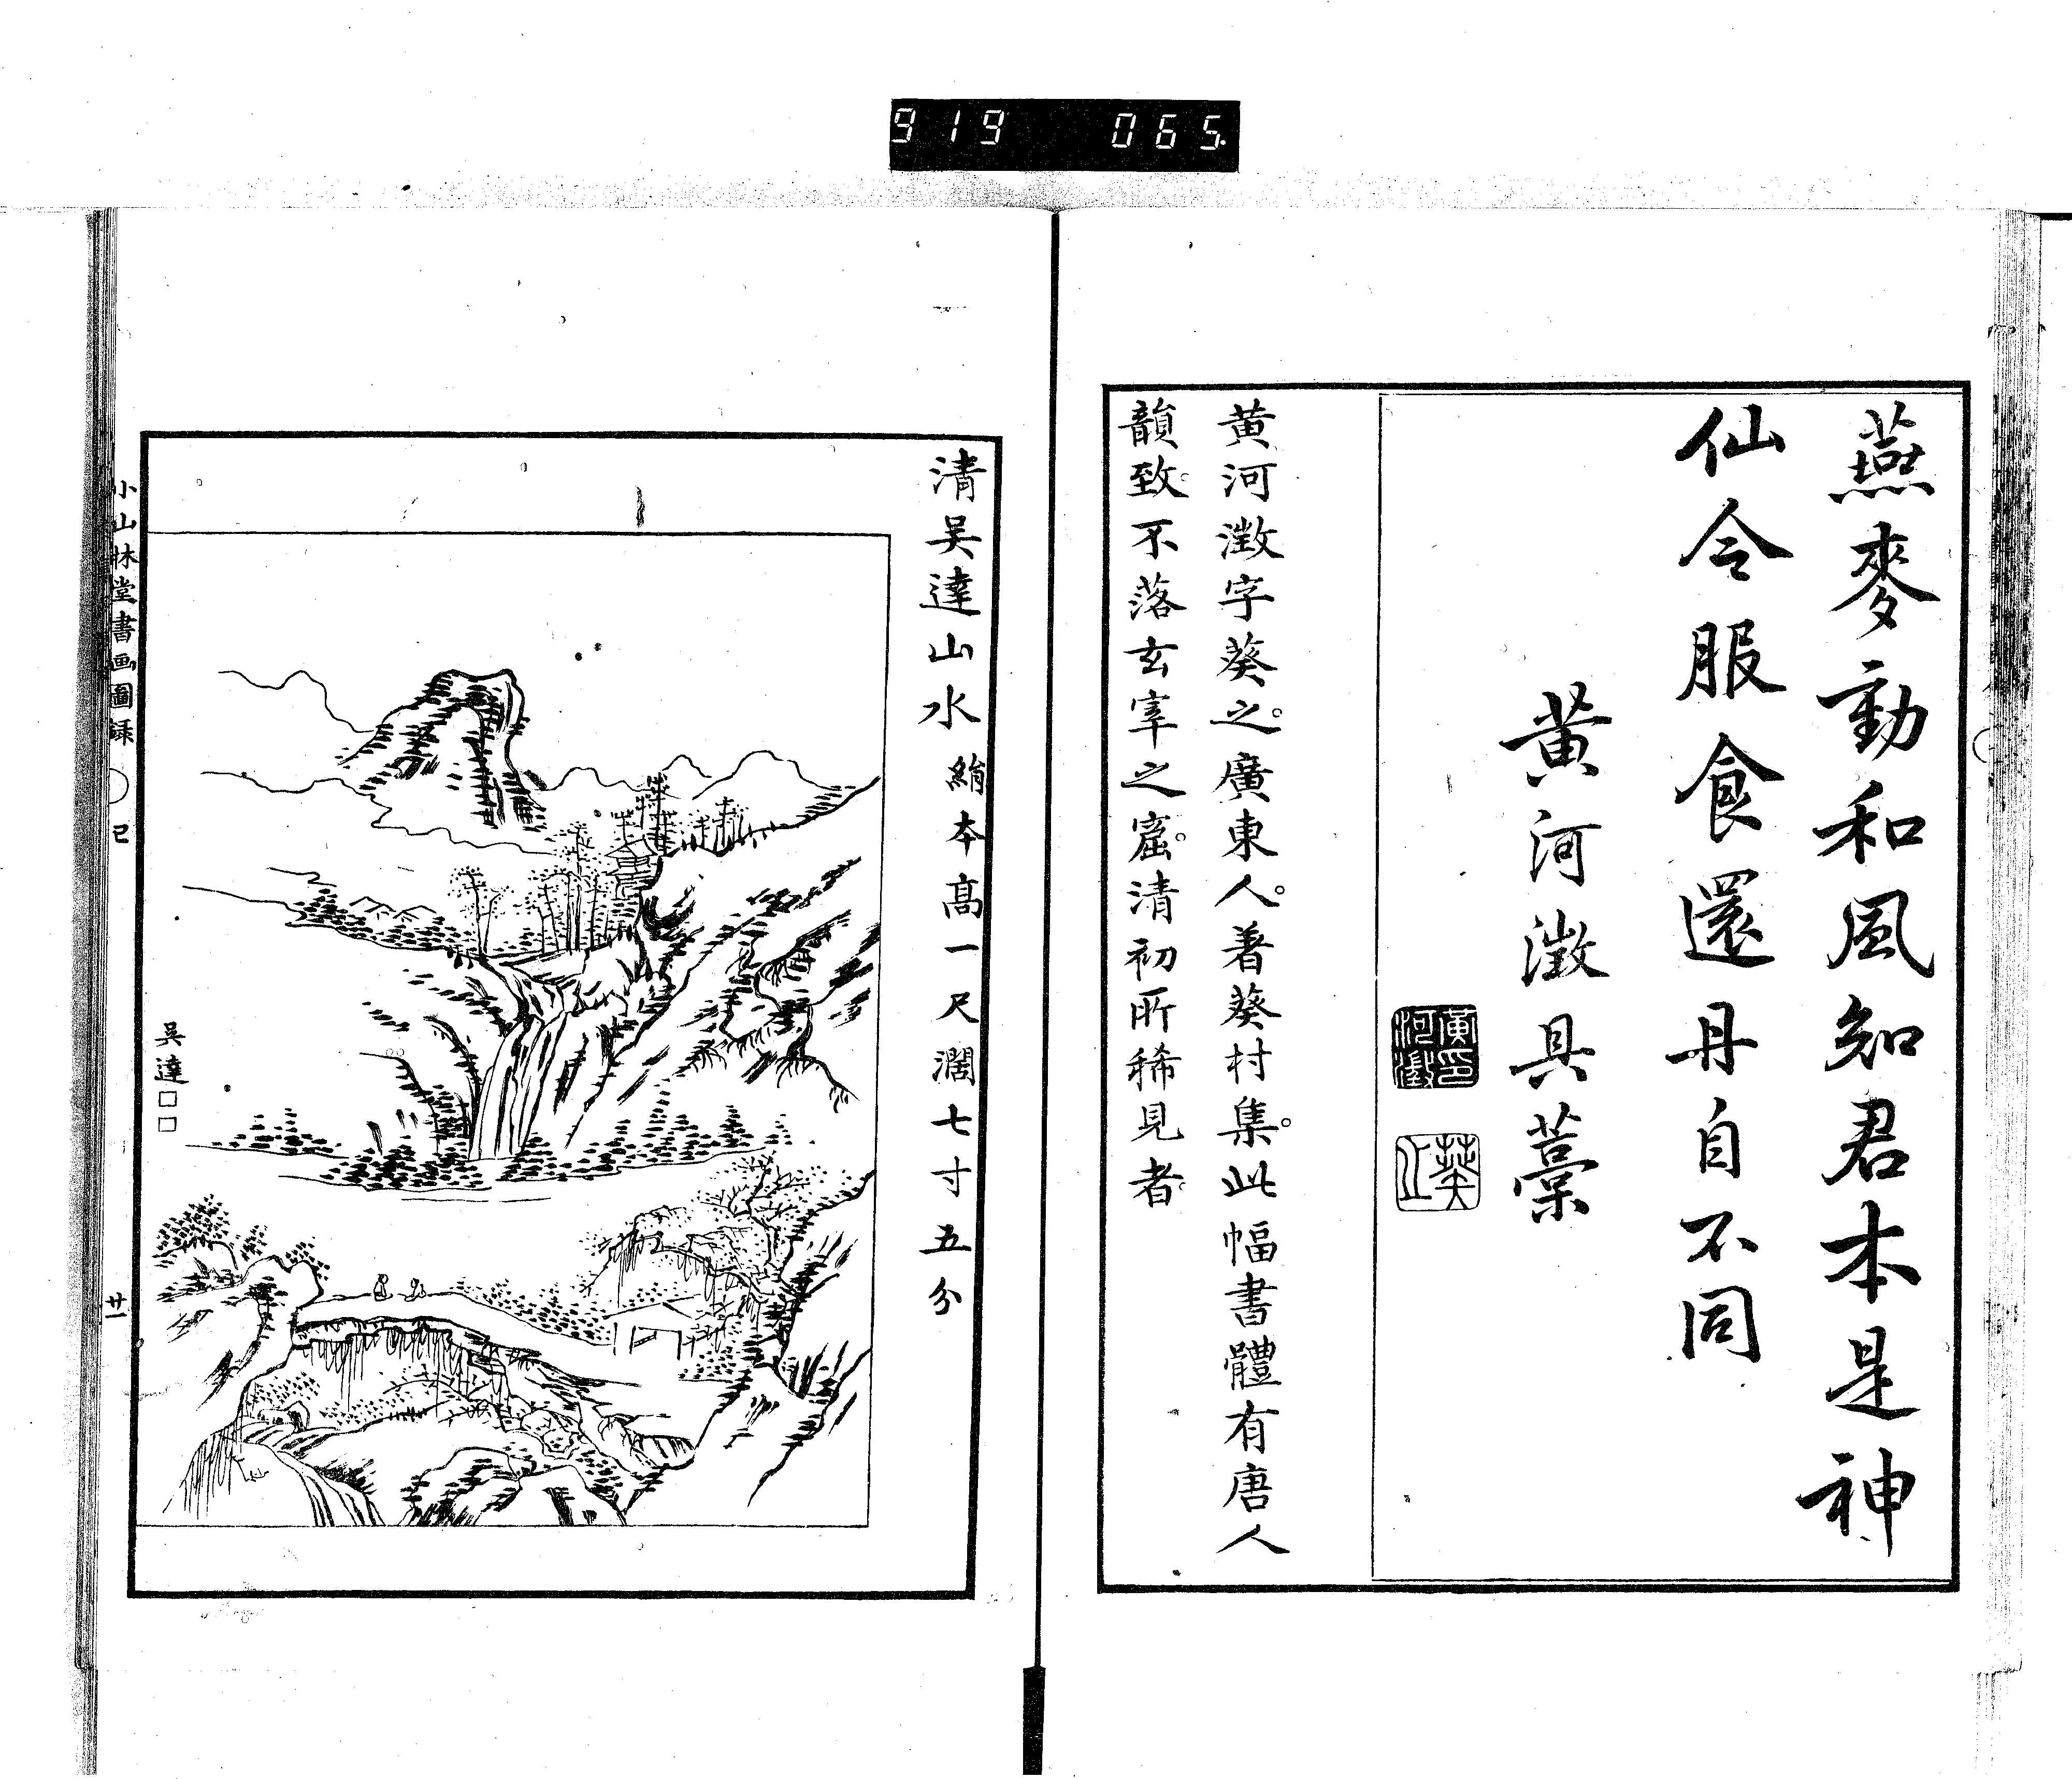 919 065
燕麥動和風知君本是神
仙令服食還丹自不同
黃河澂具藁
黃河澂字葵之廣東人著葵村集此幅書體有唐人
韻致不落玄宰之窟清初所稀見者
清吳達山水絹本高一尺濶七寸五分
吳達□□
小山林堂書画圖錄 巳 廿一